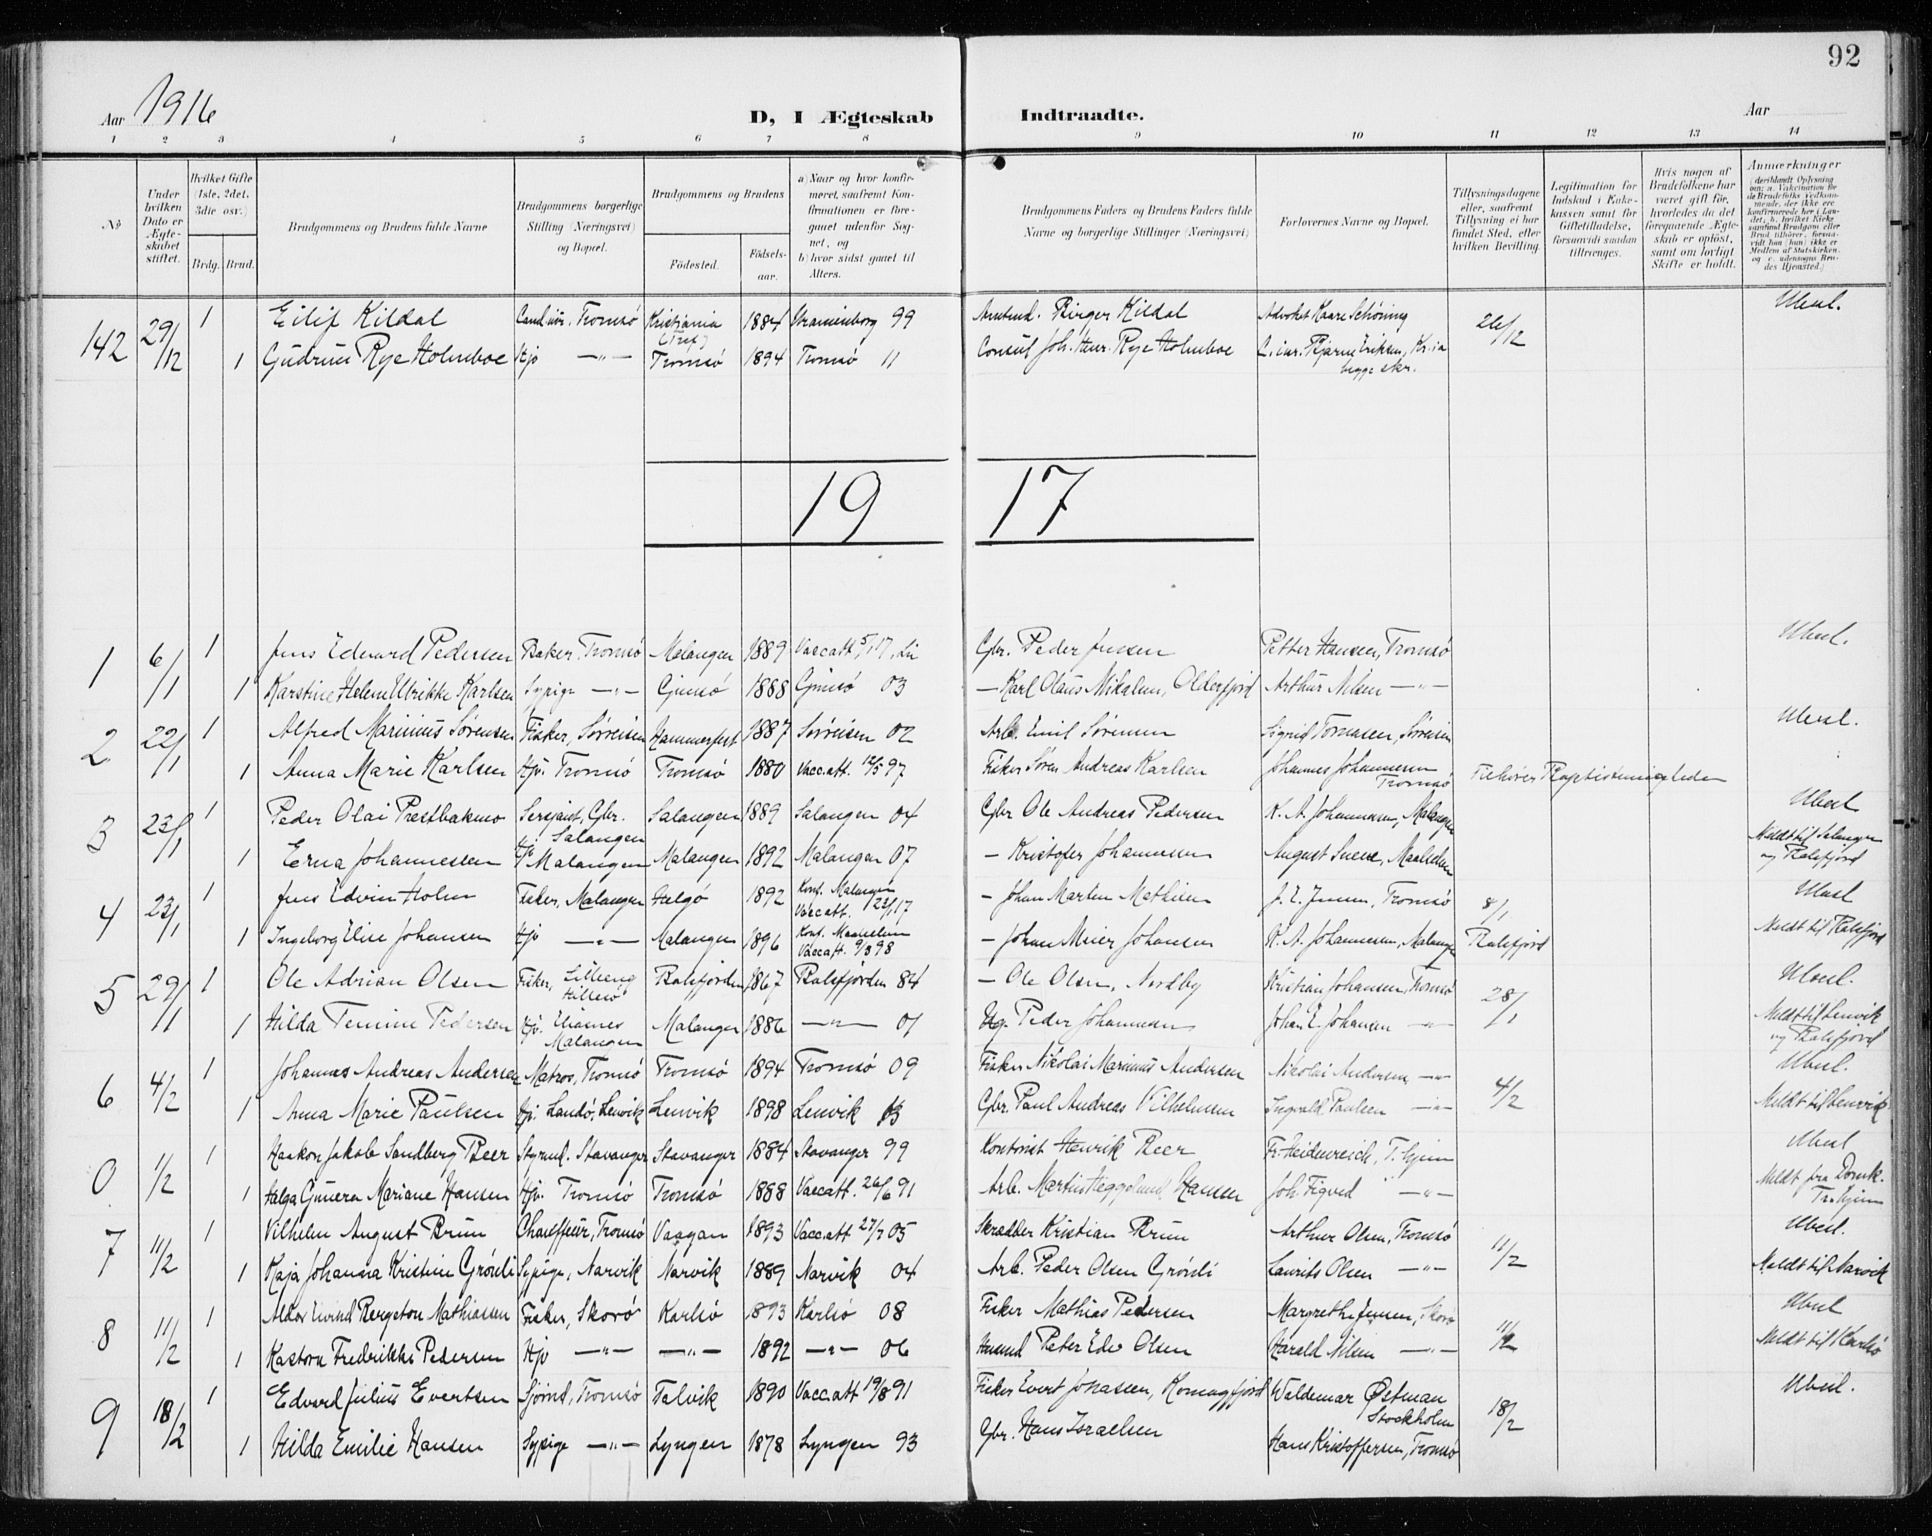 92
Aar 1916
D, I Ægteskab Indtraadte.
Aar
1 2 3 4 5 6 7 8 9 10 11 12 13 14
No
Under hvilken Dato er Ægteskabet stiftet.
Hvilket Gifte (1ste, 2det, 3die osv.)
Brdg. Brud.
Brudgommens og Brudens fulde Navne
Brudgommens borgerlige Stilling (Næringsvei) og Bopæl.
Brudgommens og Brudens
Fødested. Fødsels-aar.
a) Naar og hvor konfirmeret, saafremt Konfirmationen er foregaaet udenfor Sognet, og
b) hvor sidst gaaet til Alters.
Brudgommens Faders og Brudens Faders fulde Navne og borgerlige Stillinger (Næringsvei)
Forlovernes Navne og Bopæl.
Tillysningsdagene eller, saafremt Tillysning ei har fundet Sted, efter hvilken Bevilling.
Legitimation for Indskud i Enkekassen samt for Giftetilladelse, forsaavidt saadan tiltrænges.
Hvis nogen af Brudefolkene har været gift før, hvorledes da det foregaaende Ægteskab er opløst, samt om lovligt Skifte er holdt.
Anmærkninger
142 29/12 1 Eilif Kildal Cand. jur. Tromsø Kristiania 1884 Uranienborg 99 Amtmd. Birger Kildal Advokat Kaare Schøning 26/12 Ubesl.
1 Gudrun Rye Holmboe Hjv —"— Tromsø 1894 Tromsø 11 Consul Joh. Henr. Rye Holmboe C. jur. Bjarne Eriksen, Kr.ia
begge skr.
19 17
1 6/1 1 Jens Edvard Pedersen Baker, Tromsø Malangen 1889 Vaccatt. 5/1 17, Gbr. Peder Jensen Petter Hansen, Tromsø Ubesl.
1 Karstine Helene Ulrikke Karlsen Sypige —"— Gimsø 1888 Gimsø 03 — Karl Olaus Nikalsen, Olderfjord Arthur Nilsen —"—
2 22/1 1 Alfred Marinius Sørensen Fisker, Sørreisen Hammerfest 1887 Sørreisen 02 Arb. Emil Sørensen Sigrid Tomasen, Sørreisen Ubesl.
1 Anna Marie Karlsen Hjv. Tromsø Tromsø 1880 Vaccatt. 12/5 97 Fisker Søren Andreas Karlsen Johannes Johannesen Tromsø Tilhører Baptistmenigheden
3 23/1 1 Peder Olai Prestbakmo Sersjant, Gbr. Salangen Salangen 1889 Salangen 04 Gbr Ole Andreas Pedersen K. A. Johannesen, Malangen Ubesl
1 Erna Johannessen Hjv Malangen Malangen 1892 Malangen 07 — Kristofer Johannesen August Snese, Maalselven Meldt til Salangen og Balsfjord
4 23/1 1 Jens Edvin Holm Fisker, Malangen Helgø 1892 Konf. Malangen Vaccatt. 22/1 17 — Johan Marten Mathisen J. E. Jensen, Tromsø 8/1 Ubesl
1 Ingeborg Elise Johansen Hjv —"— Malangen 1896 Konf. Maalselven Vaccatt. 9/3 98 — Johan Meier Johansen K. A. Johannesen, Malangen Balsfjord Meldt til Balsfjord
5 29/1 1 Ole Adrian Olsen Fisker, Hillesø Balsfjorden 1867 Balsfjorden 84 — Ole Olsen, Nordby Kristian Johansen, Tromsø 28/1 Ubesl.
1 Hilda Temine Pedersen Hjv. Malangen Malangen 1886 —"— 01 Peder Johannesen Johan E. Johansen —"— Meldt til Lenvik og Balsfjord
6 4/2 1 Johannes Andreas Andersen Matros, Tromsø Tromsø 1894 Tromsø 09 Fisker Nikolai Marinius Andersen Nikolai Andersen —"— 4/2 Ubesl.
1 Anna Marie Paulsen Hjv. Landø, Lenvik Lenvik 1898 Lenvik 13 Gbr. Paul Andreas Vilhelmsen Ingvald Paulsen —"— Meldt til Lenvik
0 1/2 1 Haakon Jakob Sandberg Beer Styrmd. Stavanger Stavanger 1884 Stavanger 99 Kontorist Henrik Beer Fr. Heidenreich, T.hjem Ubesl
1 Helga Gunera Mariane Hansen Hjv. Tromsø Tromsø 1888 Vaccatt. 26/6 91 Arb. Martin Heggelund Hansen Joh. Figved —"— Meldt fra Domk. Tr.hjem
7 11/2 1 Vilhelm August Brun Chauffeur, Tromsø Vaagan 1893 Vaccatt 27/7 05 Skrædder Kristian Brun Arthur Olsen, Tromsø 11/2 Ubesl.
1 Kaja Johanna Kristine Grønli Sypige, Narvik Narvik 1889 Narvik 04 Arb. Peder Olsen Grønli Laurits Olsen —"— Meldt til Narvik
8 11/2 1 Aldor Eivind Bergeton Mathiassen Fisker, Skorø Karlsø 1893 Karlsø 08 Fisker Mathias Pedersen Margrethe Jensen, Skorø 11/2 Ubesl
1 Kastora Fredrikke Pedersen Hjv —"— —"— 1892 —"— 06 Husmd Peter Edv Olsen Harald Nilsen —"— Meldt til Karlsø
9 18/2 1 Edvard Julius Evertsen Sjømd, Tromsø Talvik 1890 Vaccatt 19/8 91 Fisker Evert Jonassen, Komagfjord Waldemar Østman Stockholm 18/2 Ubesl.
1 Hilda Emilie Hansen Sypige —"— Lyngen 1878 Lyngen 93 Gbr. Hans Israelsen Hans Kristoffersen, Tromsø